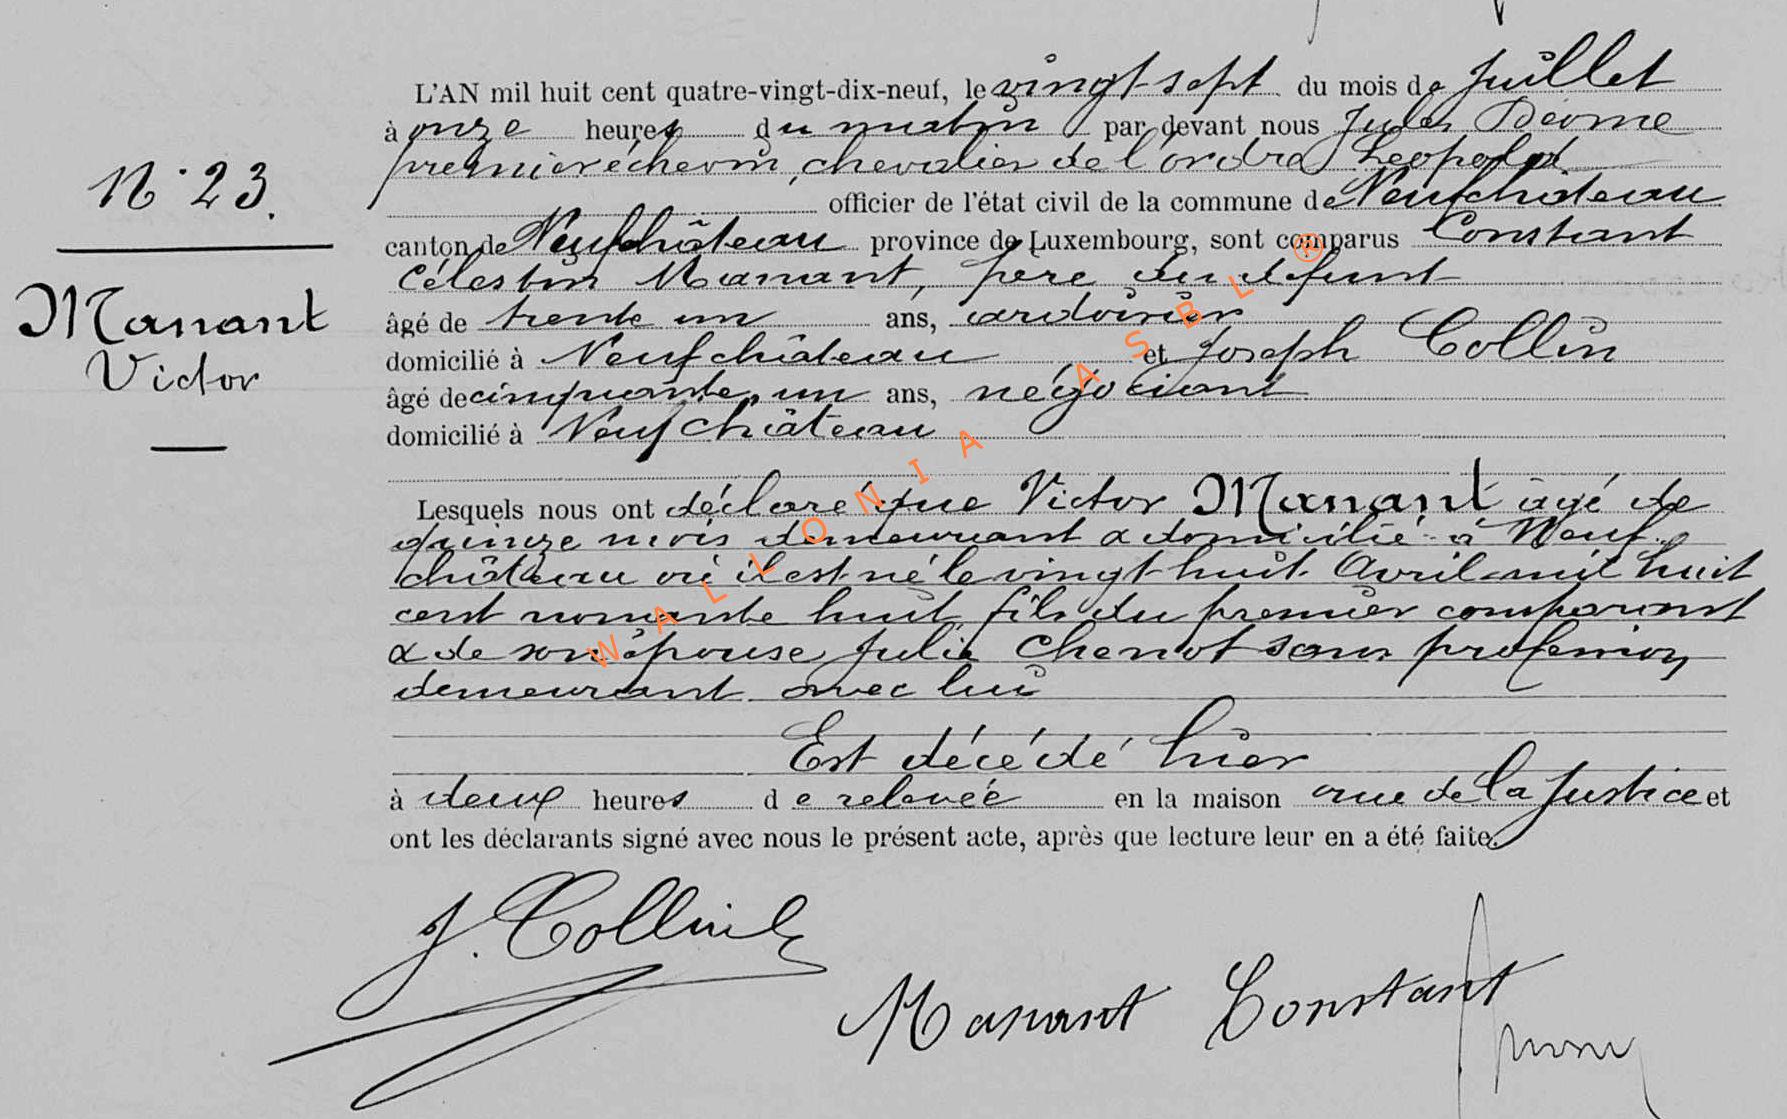 L'AN mil huit cent quatre-vingt-dix-neuf, le vingt-sept du mois de Juillet
à onze heures du matin par devant nous Jules
N° 23.
premier échevin, chevalier de l'ordre Léopold
officier de l'état civil de la commune de Neufchâteau
canton de Neufchâteau province de Luxembourg, sont comparus Constant
Célestin Manant, père du défunt
Manant
âgé de trente un ans, ardoisier
Victor
domicilié à Neufchâteau et Joseph Collin
âgé de cinquante un ans, négociant
domicilié à Neufchâteau
Lesquels nous ont déclaré que Victor Manant âgé de
quinze mois demeurant & domicilié à Neuf-
château où il est né le vingt huit Avril mil huit
cent nonante huit, fils du premier comparant
& de son épouse Julie Chenot sans profession
demeurant avec lui
Est décédé hier
à deux heures de relevée en la maison rue de la Justice et
ont les déclarants signé avec nous le présent acte, après que lecture leur en a été faite.
J. Collin
Manant Constant
WALLONIA ASBL ®